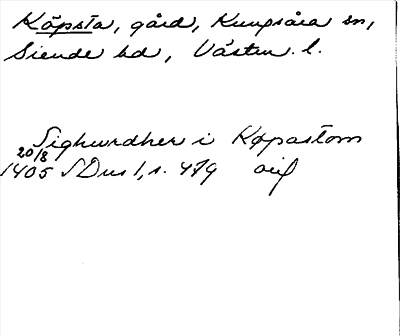 Köpsta, gård, Kungsåra sn,
Siende hd, Västm. l.
Sighwrdher i Køpastom
20/8
1405 SDns 1, s. 479 avf